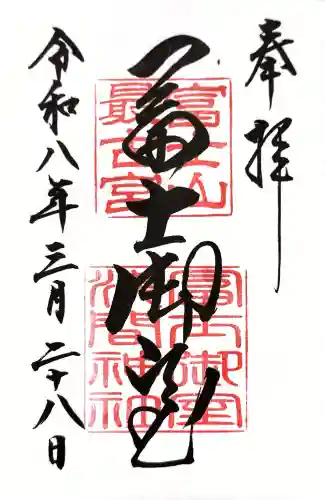 奉拝
冨士御室
富士山
最古宮
冨士御室
浅間神社
令和八年三月二十八日